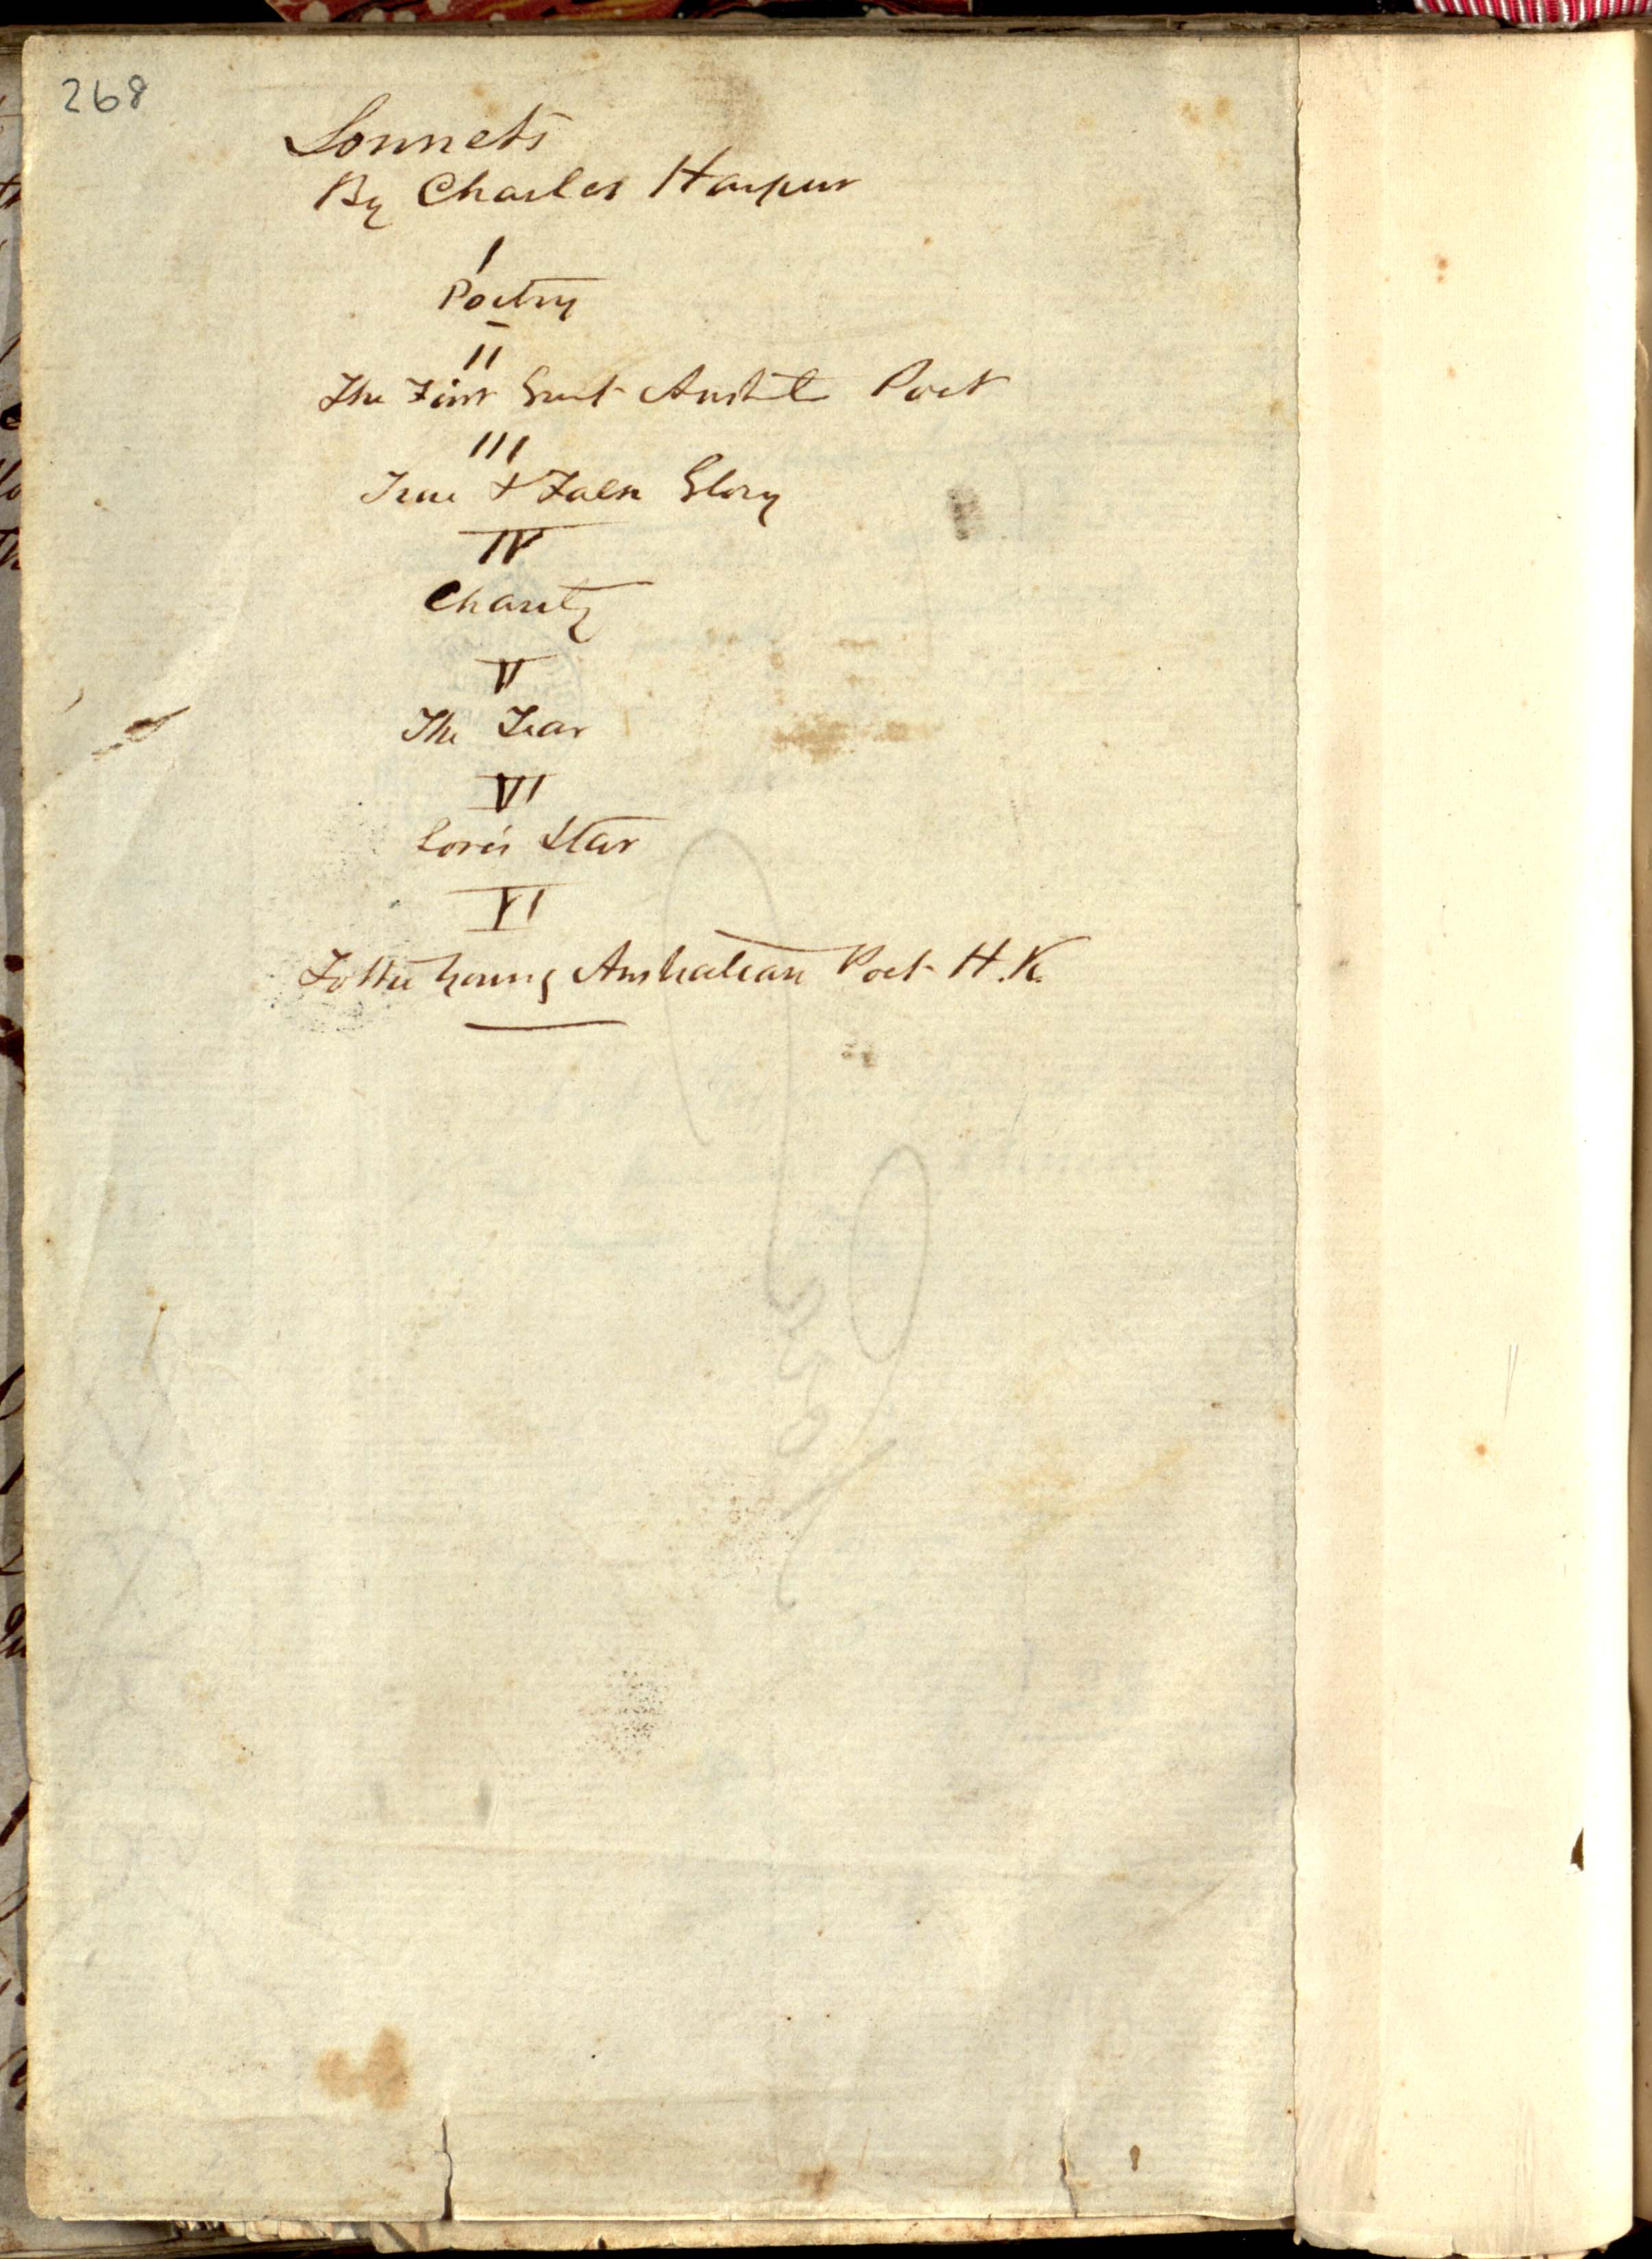 268
Sonnets
By Charles Harpur
I
Poetry
II
The First Great Austrl Poet
III
True & False Glory
IV
Charity
V
The Tear
VI
Love's Star
VI
To the Young Australian Poet H. K.